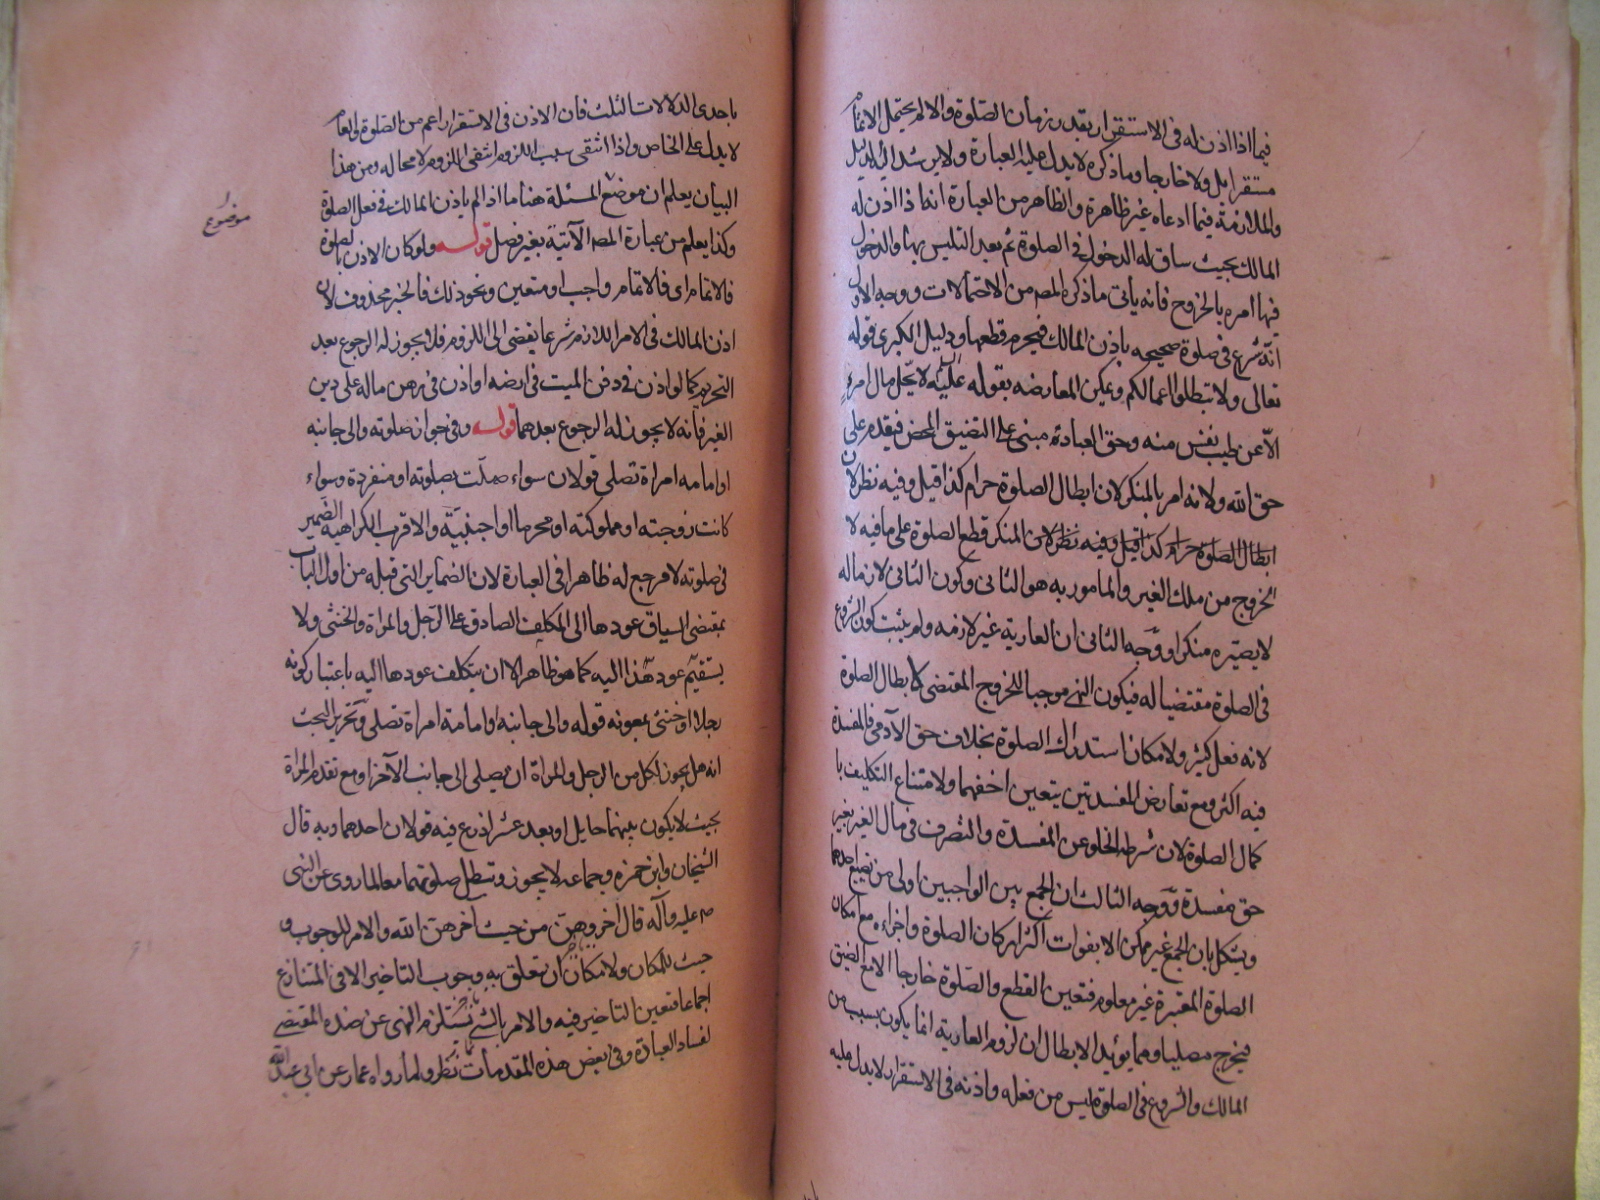 فيما اذا اذن له فى الاستقرار بقدر زمان الصلوة والا لم يحتمل الاتمام
مستقرا بل ولا خارجا وما ذكره لا يدل عليه العبارة ولا يرشد اليه الدليل
والملازمة فيما ادعاه غير ظاهرة والظاهر من العبارة انه اذا اذن له
المالك بحيث ساق له الدخول فى الصلوة ثم بعد التلبس بها والدخول
فيها امره بالخروج فانه يأتى ما ذكره المص من الاحتمالات ووجه الاول
انه شرع فى صلوة صحيحه باذن المالك فيحرم قطعها ودليل الكبرى قوله
تعالى ولا تبطلوا اعمالكم ويمكن المعارضه بقوله عليه لا يحل مال امرء
الا عن طيب نفس منه وحق العبادة مبنى على التضيق المحض فيقدم على
حق الله ولانه امر بالمنكر لان ابطال الصلوة حرام كذا قيل وفيه نظر لان
ابطال الصلوة حرام كذا قيل وفيه نظر لان المنكر قطع الصلوة على ما فيه لا
الخروج من ملك الغير والمامور به هو الثانى وكون الثانى لازما له
لا يصيره منكرا ووجه الثانى ان العارية غير لازمه ولم يثبت كون الشروع
فى الصلوة مقتضيا له فيكون النهى موجبا للخروج المقتضى لابطال الصلوة
لانه فعل كثير ولامكان استدراك الصلوة بخلاف حق الآدمى فالمفسدة
فيه اكثر ومع تعارض المفسدتين يتعين اخفهما ولامتناع التكليف با
كمال الصلوة لان شرطه الخلو عن المفسدة والتصرف فى مال الغير بغير
حق مفسدة ووجه الثالث ان الجمع بين الواجبين اولى من تضييع احدهما
ويشكل بان الجمع غير ممكن الا بفوات اكثر اركان الصلوة واجزاءه مع امكان
الصلوة المعتبرة غير معلوم فتعين القطع والصلوة خارجا الا مع الضيق
فيخرج مصليا ومما يؤيد الابطال ان لزوم العارية انما يكون بسبب من
المالك والشروع فى الصلوة ليس من فعله واذنه فى الاستقرار لا يدل عليه
باحدى الدلالات الثلث فان الاذن فى الاستقرار اعم من الصلوة والعام
لا يدل على الخاص واذا انتفى سبب اللزوم انتفى اللزوم لا محاله ومن هذا
البيان يعلم ان موضع المسئلة هنا ما اذا لم ياذن المالك فى فعل الصلوة
موضوع
وكذا يعلم من عبارة المص الآتية بغير فصل قوله ولو كان الاذن بالصلوة
فالاتمام اى فالاتمام واجب او متعين ونحو ذلك فالخبر محذوف لان
اذن المالك فى الامر اللازم شرعا يفضى الى اللزوم فلا يجوز له الرجوع بعد
التحريم كما لو اذن فى دفن الميت فى ارضه او اذن فى رهن ماله على دين
الغير فانه لا يجوز له الرجوع بعدهما قوله وفى جواز صلوته والى جانبه
او امامه امراة تصلى قولان سواء صلت بصلوته او منفردة وسواء
كانت زوجته او مملوكته او محرما او اجنبية والاقرب الكراهية الضمير
فى صلوته لا مرجع له ظاهرا فى العبارة لان الضماير التى قبله من اول الباب
بمقتضى السياق عودها الى المكلف الصادق على الرجل والمراة والخنثى ولا
يستقيم عود هذا اليه كما هو ظاهر الا ان يتكلف عودها اليه باعتبار كونه
رجلا او خنثى بمعونه قوله والى جانبه او امامة امراة تصلى وتحرير البحث
انه هل يجوز لكل من الرجل والمراة ان يصلى الى جانب الآخر او مع تقدم المراة
بحيث لا يكون بينهما حايل او بعد عشر اذرع فيه قولان احدهما وبه قال
الشيخان وابن حمزه وجماعه لا يجوز وتبطل صلوتهما معا لما روى عن النبى
ص عليه وآله قال اخروهن من حيث اخرهن الله والامر للوجوب و
حيث للمكان ولا مكان ان يتعلق به وجوب التاخير الا فى المتنازع
اجماعا فتعين التاخير فيه والامر بالشئ يستلزم النهى عن ضده المقتضى
لفساد العبادة وفى بعض هذه المقدمات نظر ولما رواه عمار عن ابى عبد الله